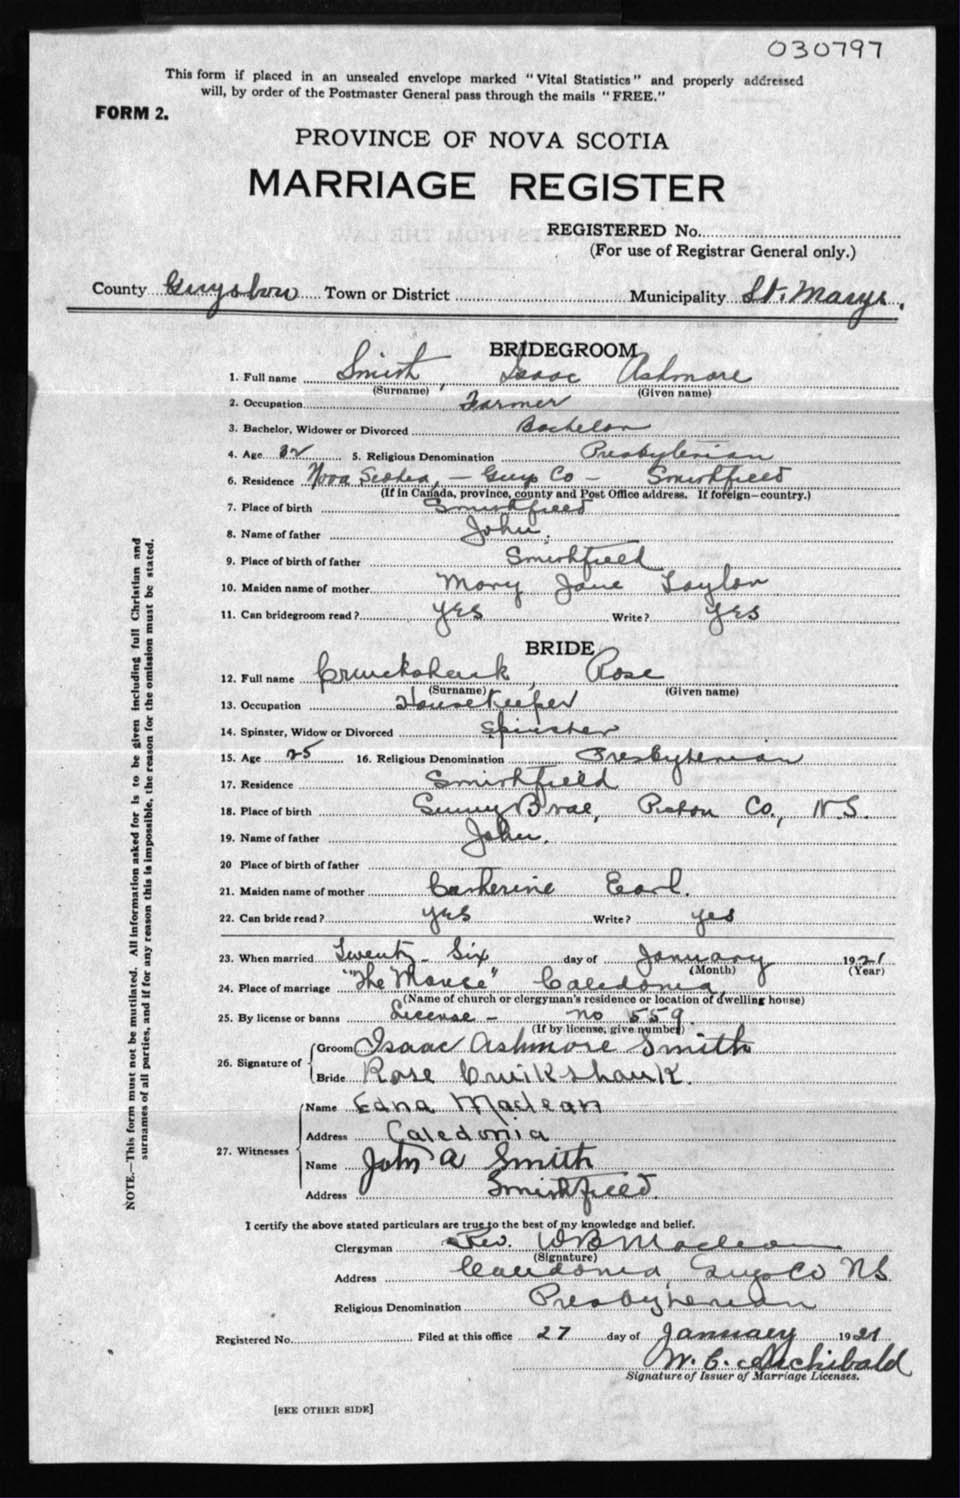 030797
This form if placed in an unsealed envelope marked "Vital Statistics" and properly addressed
will, by order of the Postmaster General pass through the mails "FREE."
FORM 2.
PROVINCE OF NOVA SCOTIA
MARRIAGE REGISTER
REGISTERED No.
(For use of Registrar General only.)
County Guysboro Town or District Municipality St. Marys.
BRIDEGROOM
1. Full name Smith, Isaac Ashmore
(Surname) (Given name)
2. Occupation Farmer
3. Bachelor, Widower or Divorced Bachelor
4. Age 32 5. Religious Denomination Presbyterian
6. Residence Nova Scotia, - Guys Co - Smithfield
(If in Canada, province, county and Post Office address. If foreign—country.)
7. Place of birth Smithfield
8. Name of father John.
9. Place of birth of father Smithfield
10. Maiden name of mother Mary Jane Taylor
11. Can bridegroom read? yes Write? Yes
BRIDE
12. Full name Cruickshank, Rose
(Surname) (Given name)
13. Occupation HouseKeeper
14. Spinster, Widow or Divorced Spinster
15. Age 25 16. Religious Denomination Presbyterian
17. Residence Smithfield
18. Place of birth Sunny Brae, Pictou Co., N.S.
19. Name of father John.
20 Place of birth of father
21. Maiden name of mother Catherine Earl.
22. Can bride read? yes Write? yes
23. When married Twenty-Six day of January 1921
(Month) (Year)
24. Place of marriage "The Manse" Caledonia
(Name of church or clergyman's residence or location of dwelling house)
25. By license or banns License - no 559
(If by license, give number)
26. Signature of
Groom Isaac Ashmore Smith
Bride Rose Cruikshank.
27. Witnesses
Name Edna Maclean
Address Caledonia
Name John A Smith
Address Smithfield.
I certify the above stated particulars are true to the best of my knowledge and belief.
Clergyman Rev. W B Maclean
(Signature)
Address Caledonia, Guys Co N S
Religious Denomination Presbyterian
Registered No. Filed at this office 27 day of January 1921
W. C. Archibald
Signature of Issuer of Marriage Licenses.
[SEE OTHER SIDE]
NOTE.—This form must not be mutilated. All information asked for is to be given including full Christian and
surnames of all parties, and if for any reason this is impossible, the reason for the omission must be stated.